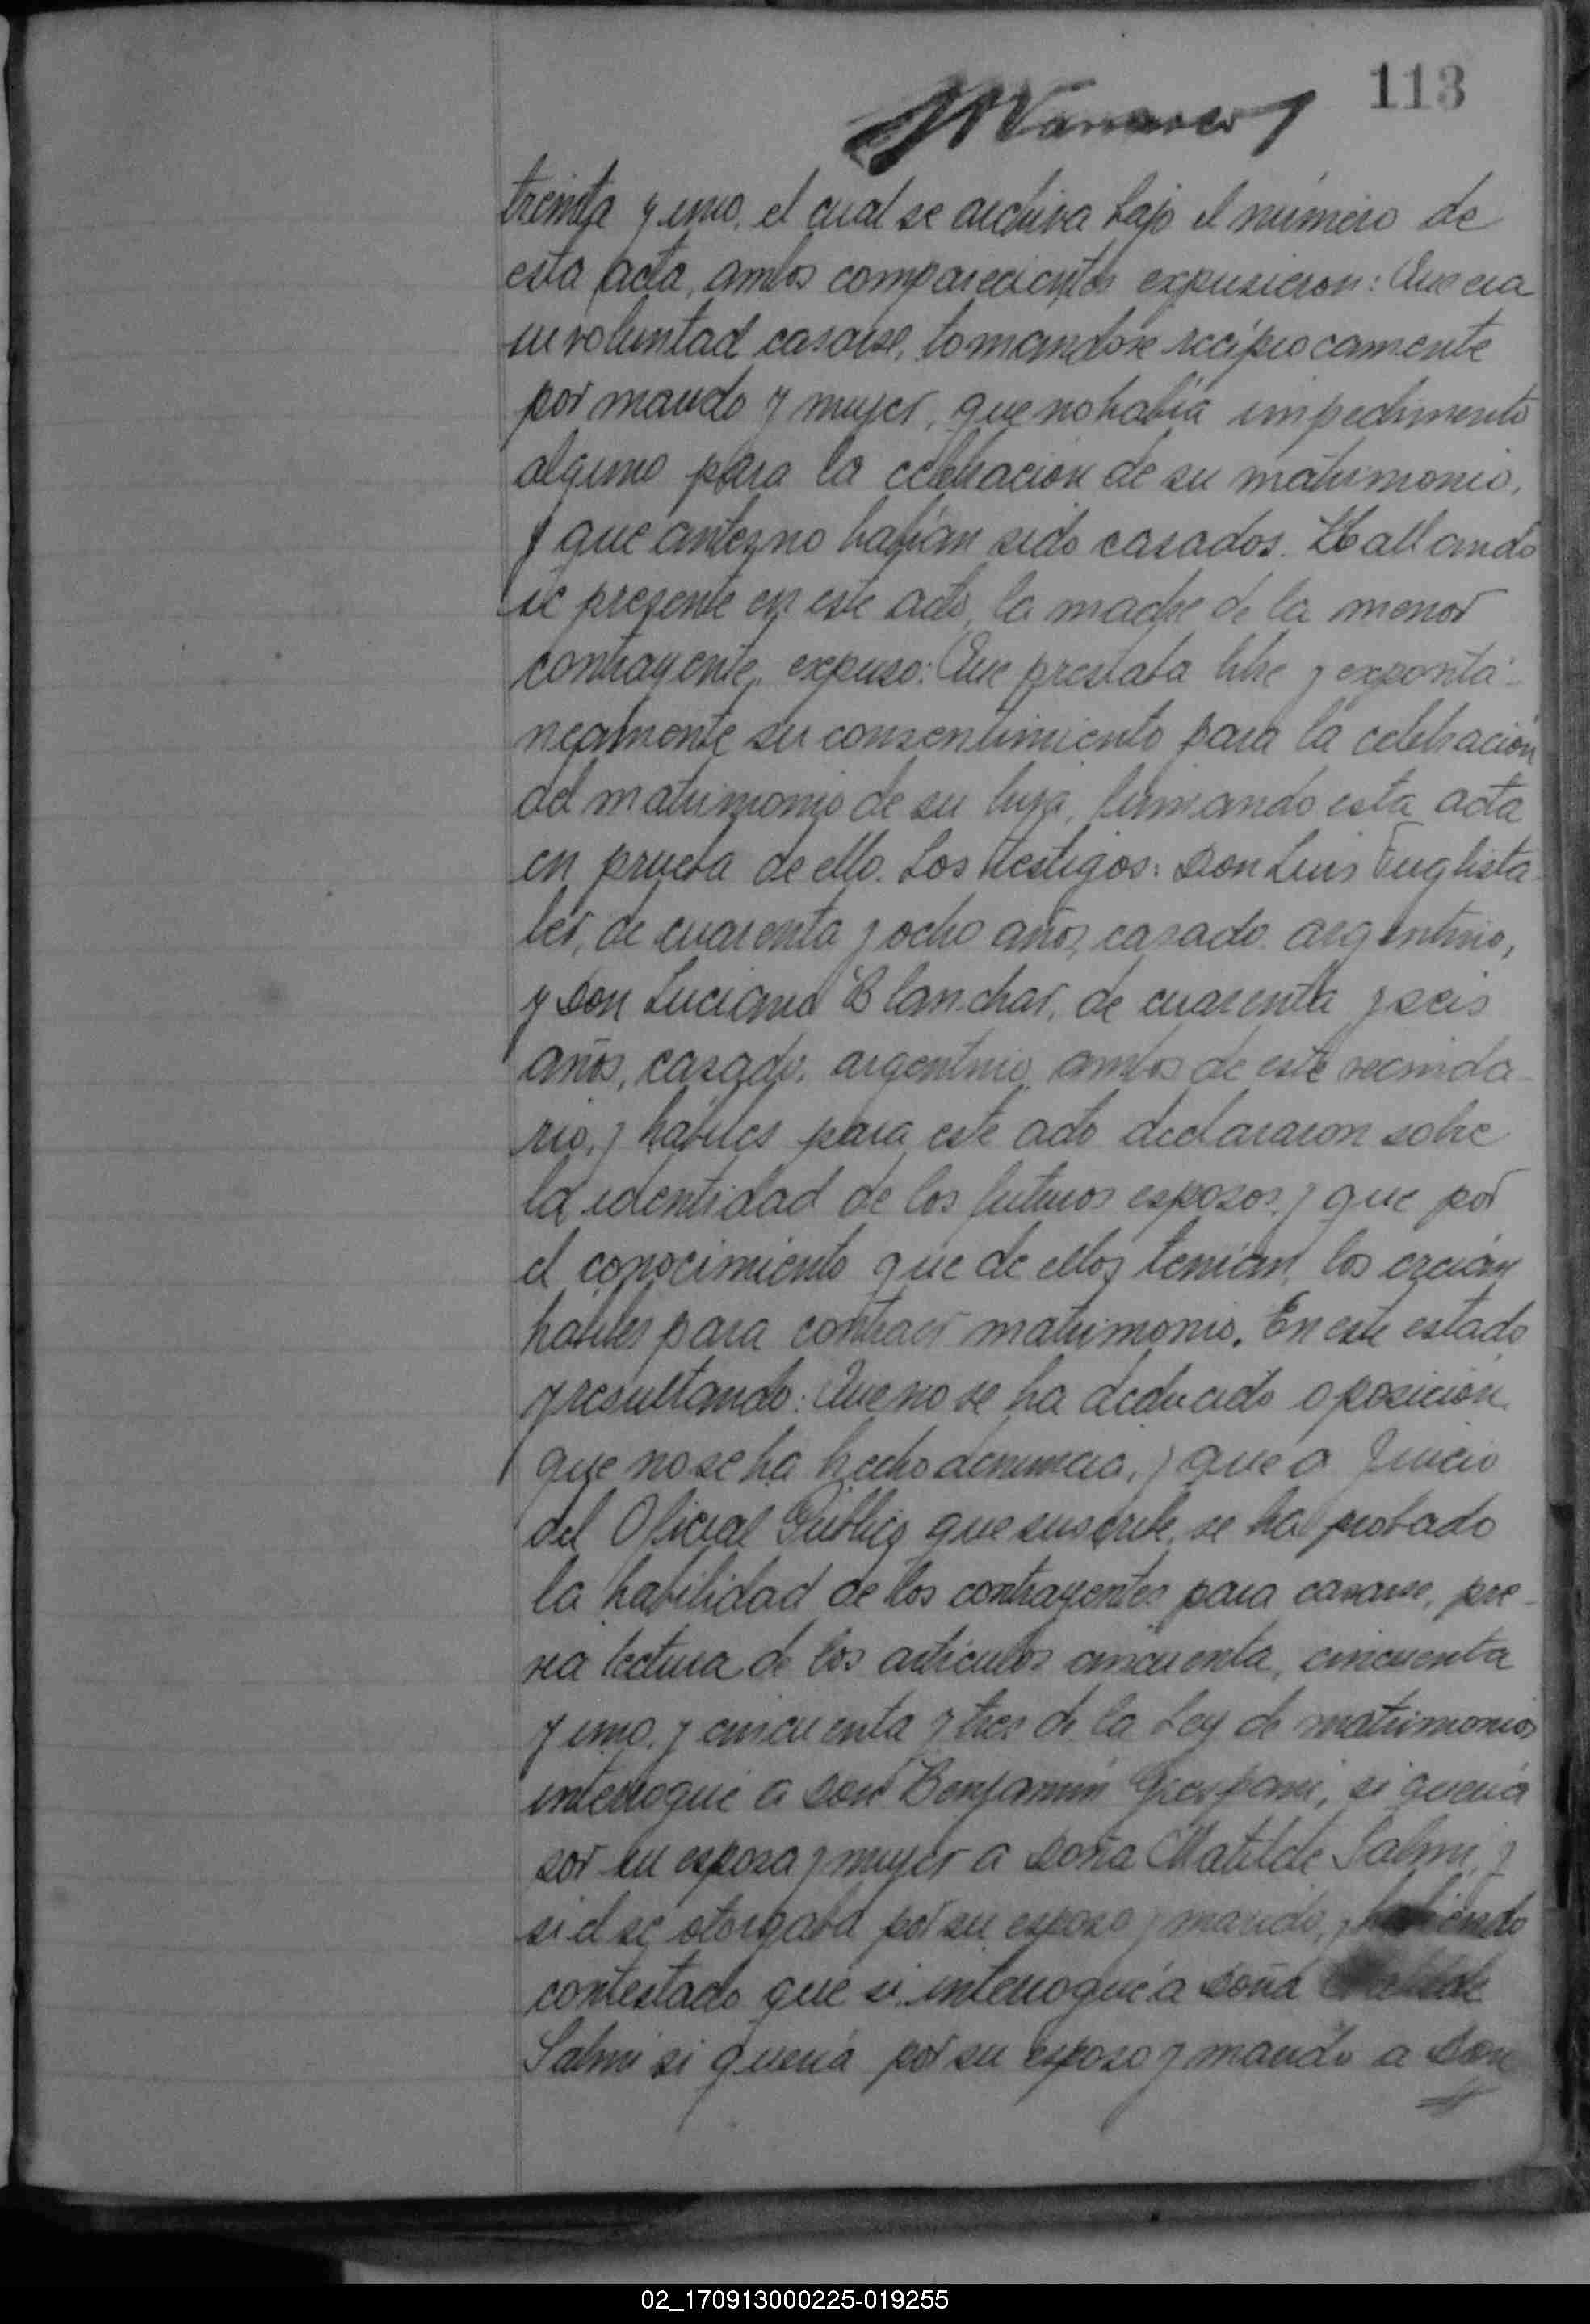 113
treinta y uno, el cual se archiva bajo el número de
esta acta, ambos comparecientes expusieron: Que era
su voluntad casarse, tomandose recíprocamente
por marido y mujer, que no había impedimento
alguno para la celebración de su matrimonio,
y que antes no habían sido casados. Hallando
se presente en este acto, la madre de la menor
contrayente, expuso: Que prestaba libre y expontá-
neamente su consentimiento para la celebración
del matrimonio de su hija, firmando esta acta
en prueba de ello. Los testigos: Don Luis Fuglista-
ler, de cuarenta y ocho años, casado, argentino,
y Don Luciano Blanchar, de cuarenta y seis
años, casado, argentino, ambos de este vecinda-
rio, y hábiles para este acto declararon sobre
la identidad de los futuros esposos, y que por
el conocimiento que de ellos tenían, los creían
habiles para contraer matrimonio. En este estado
y resultando: Que no se ha deducido oposición,
que no se ha hecho denuncia, y que a juicio
del Oficial Público que suscribe, se ha probado
la habilidad de los contrayentes para casarse, pre-
via lectura de los artículos cincuenta, cincuenta
y uno, y cincuenta y tres de la Ley de matrimonios
interrogué a Don Benjamín si quería
por su esposa y mujer a Doña Matilde Salmi, y
si él se otorgaba por su esposo y marido, y habiendo
contestado que si, interrogué a Doña Matilde
Salmi si quería por su esposo y marido a Don
02_170913000225-019255